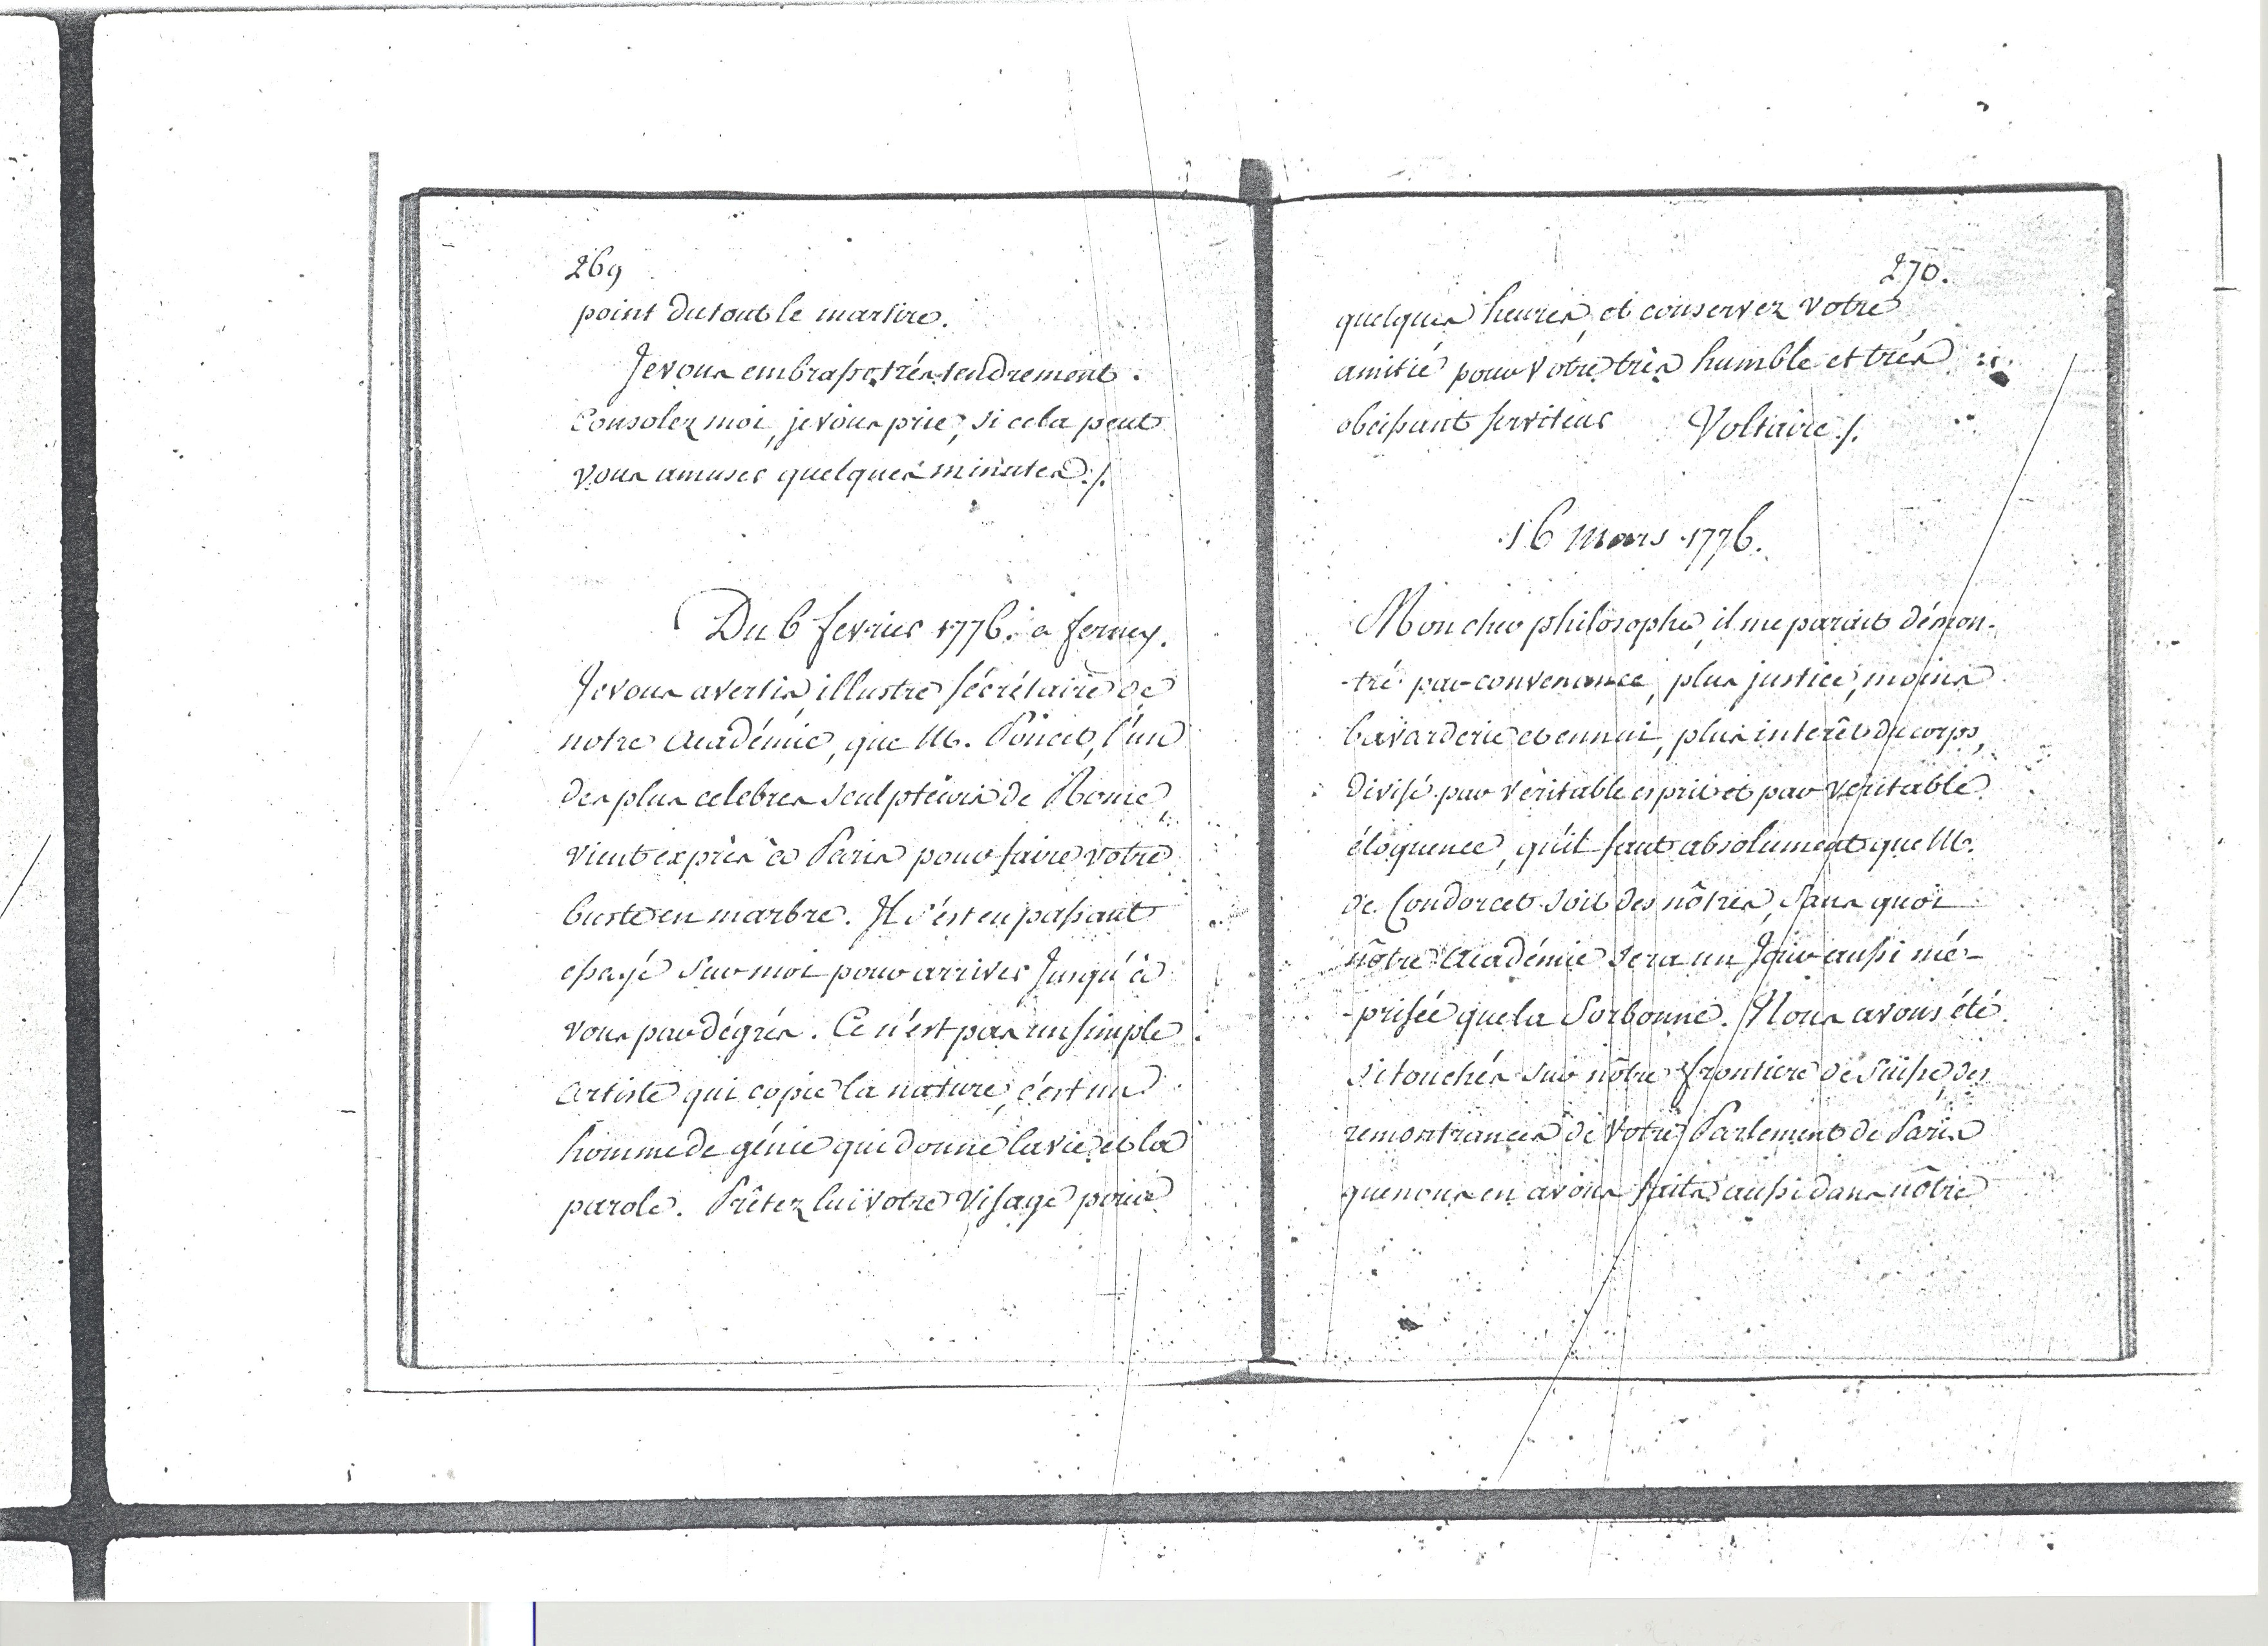 269
point du tout le martire.
Je vous embrasse très tendrement.
Consolez moi, je vous prie, si cela peut
vous amuser quelques minutes ./.
Du 6 fevrier 1776. a ferney.
Je vous avertis, illustre sécrétaire de
notre Académie, que M. Poncet, l'un
des plus celebres sculpteurs de Rome,
vient exprès à Paris pour faire votre
buste en marbre. Il s'est en passant
essayé sur moi pour arriver jusqu'à
vous par dégrés. Ce n'est pas un simple
artiste qui copie la nature, c'est un
homme de génie qui donne la vie et la
parole. Prêtez lui votre visage pour
270.
quelques heures, et conservez votre
amitié pour votre très humble et très
obeissant serviteur Voltaire ./.
16 mars 1776.
Mon cher philosophe, il me parait démon-
-tré par convenance, plus justice, moins
bavarderie et ennui, plus interêt du corps,
divisé par véritable esprit et par veritable
éloquence, qu'il faut absolument que M.
de Condorcet soit des nôtres, sans quoi
nôtre Académie sera un jour aussi mé-
-prisée que la Sorbonne. Nous avons été
si touchés sur nôtre frontiere de Suisse des
remontrances de votre Parlement de Paris
que nous en avons faits aussi dans nôtre